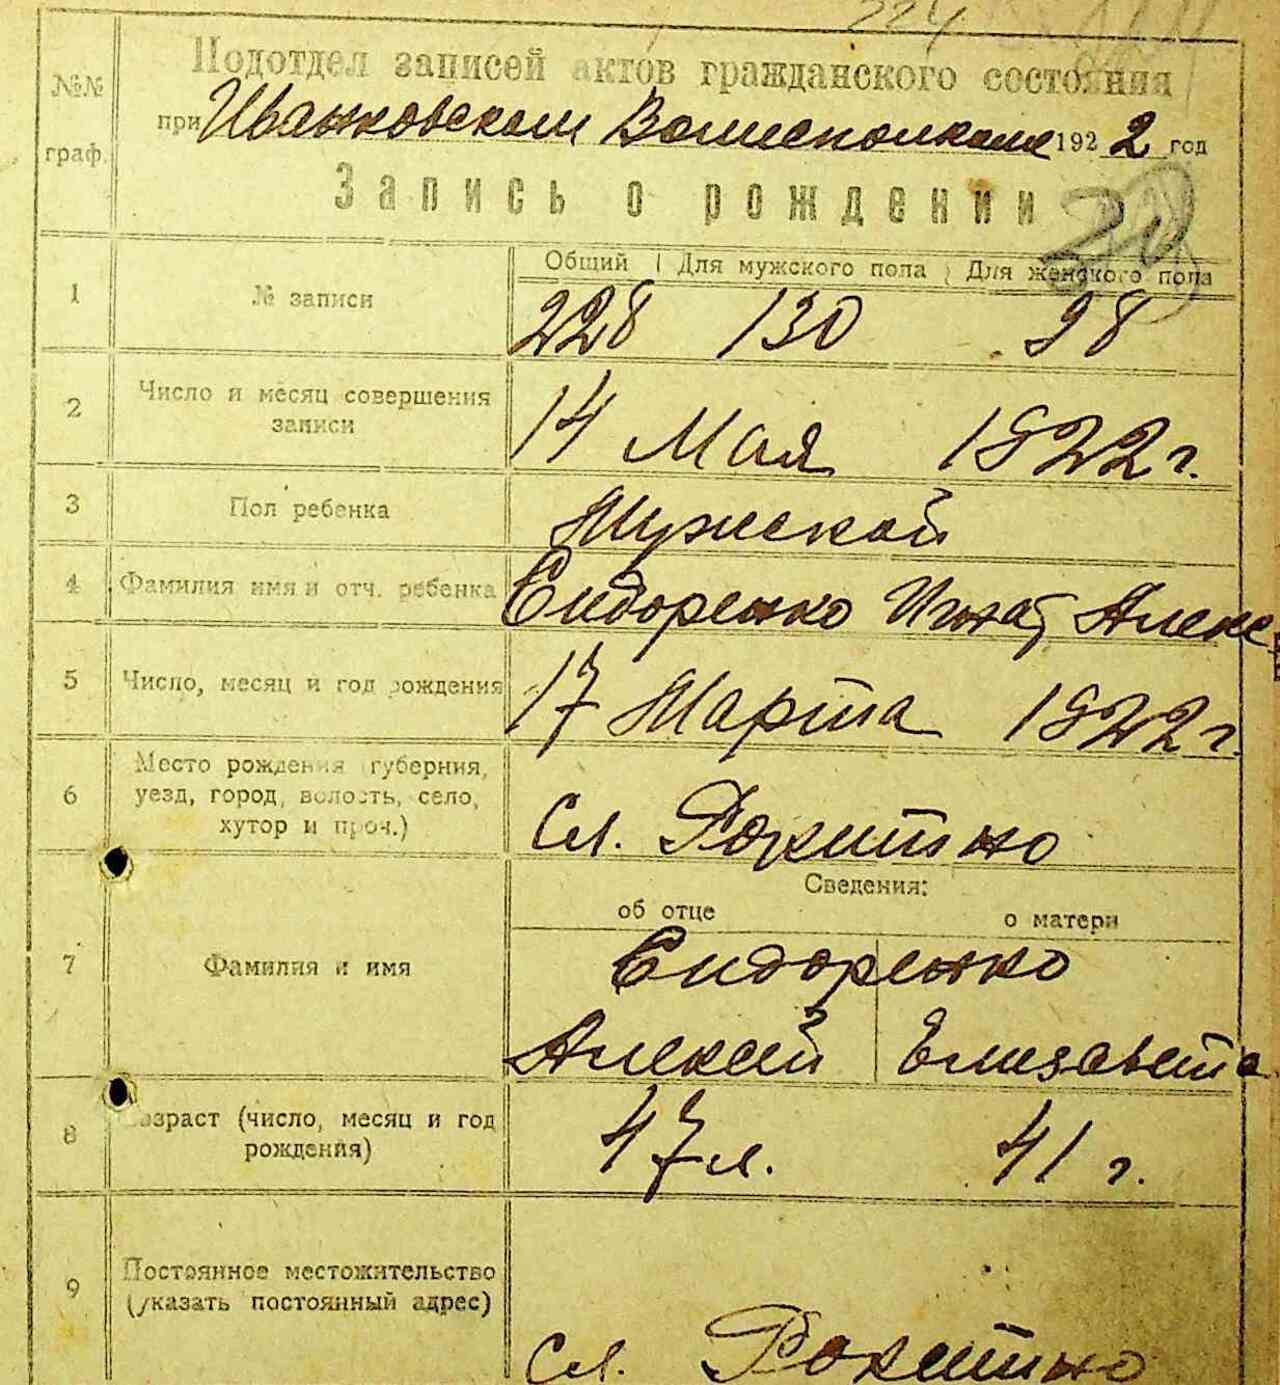 224
№№ граф.
Подотдел записей актов гражданского состояния
при Иванковском Волисполкоме 1922 год
Запись о рождении
Общий Для мужского пола Для женского пола
1 № записи 228 130 98
2 Число и месяц совершения записи 14 Мая 1922 г.
3 Пол ребенка Мужской
4 Фамилия имя и отч. ребенка Сидоренко Игнат Алекс
5 Число, месяц и год рождения 17 Марта 1922 г.
6 Место рождения (губерния,
уезд, город, волость, село,
хутор и проч.) Сл. Рокитно
Сведения:
об отце о матери
7 Фамилия и имя Сидоренко
Алексей Елизавета
8 Возраст (число, месяц и год
рождения) 47 л. 41 г.
9 Постоянное местожительство
(указать постоянный адрес)
Сл. Рокитно